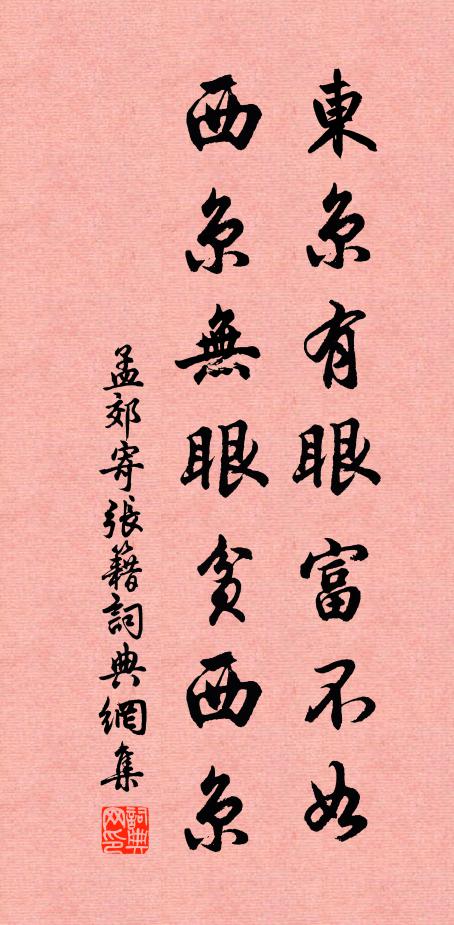 東京有眼富不如
西京無眼貧西京
孟郊寄張籍詞典網集
詞典
网印